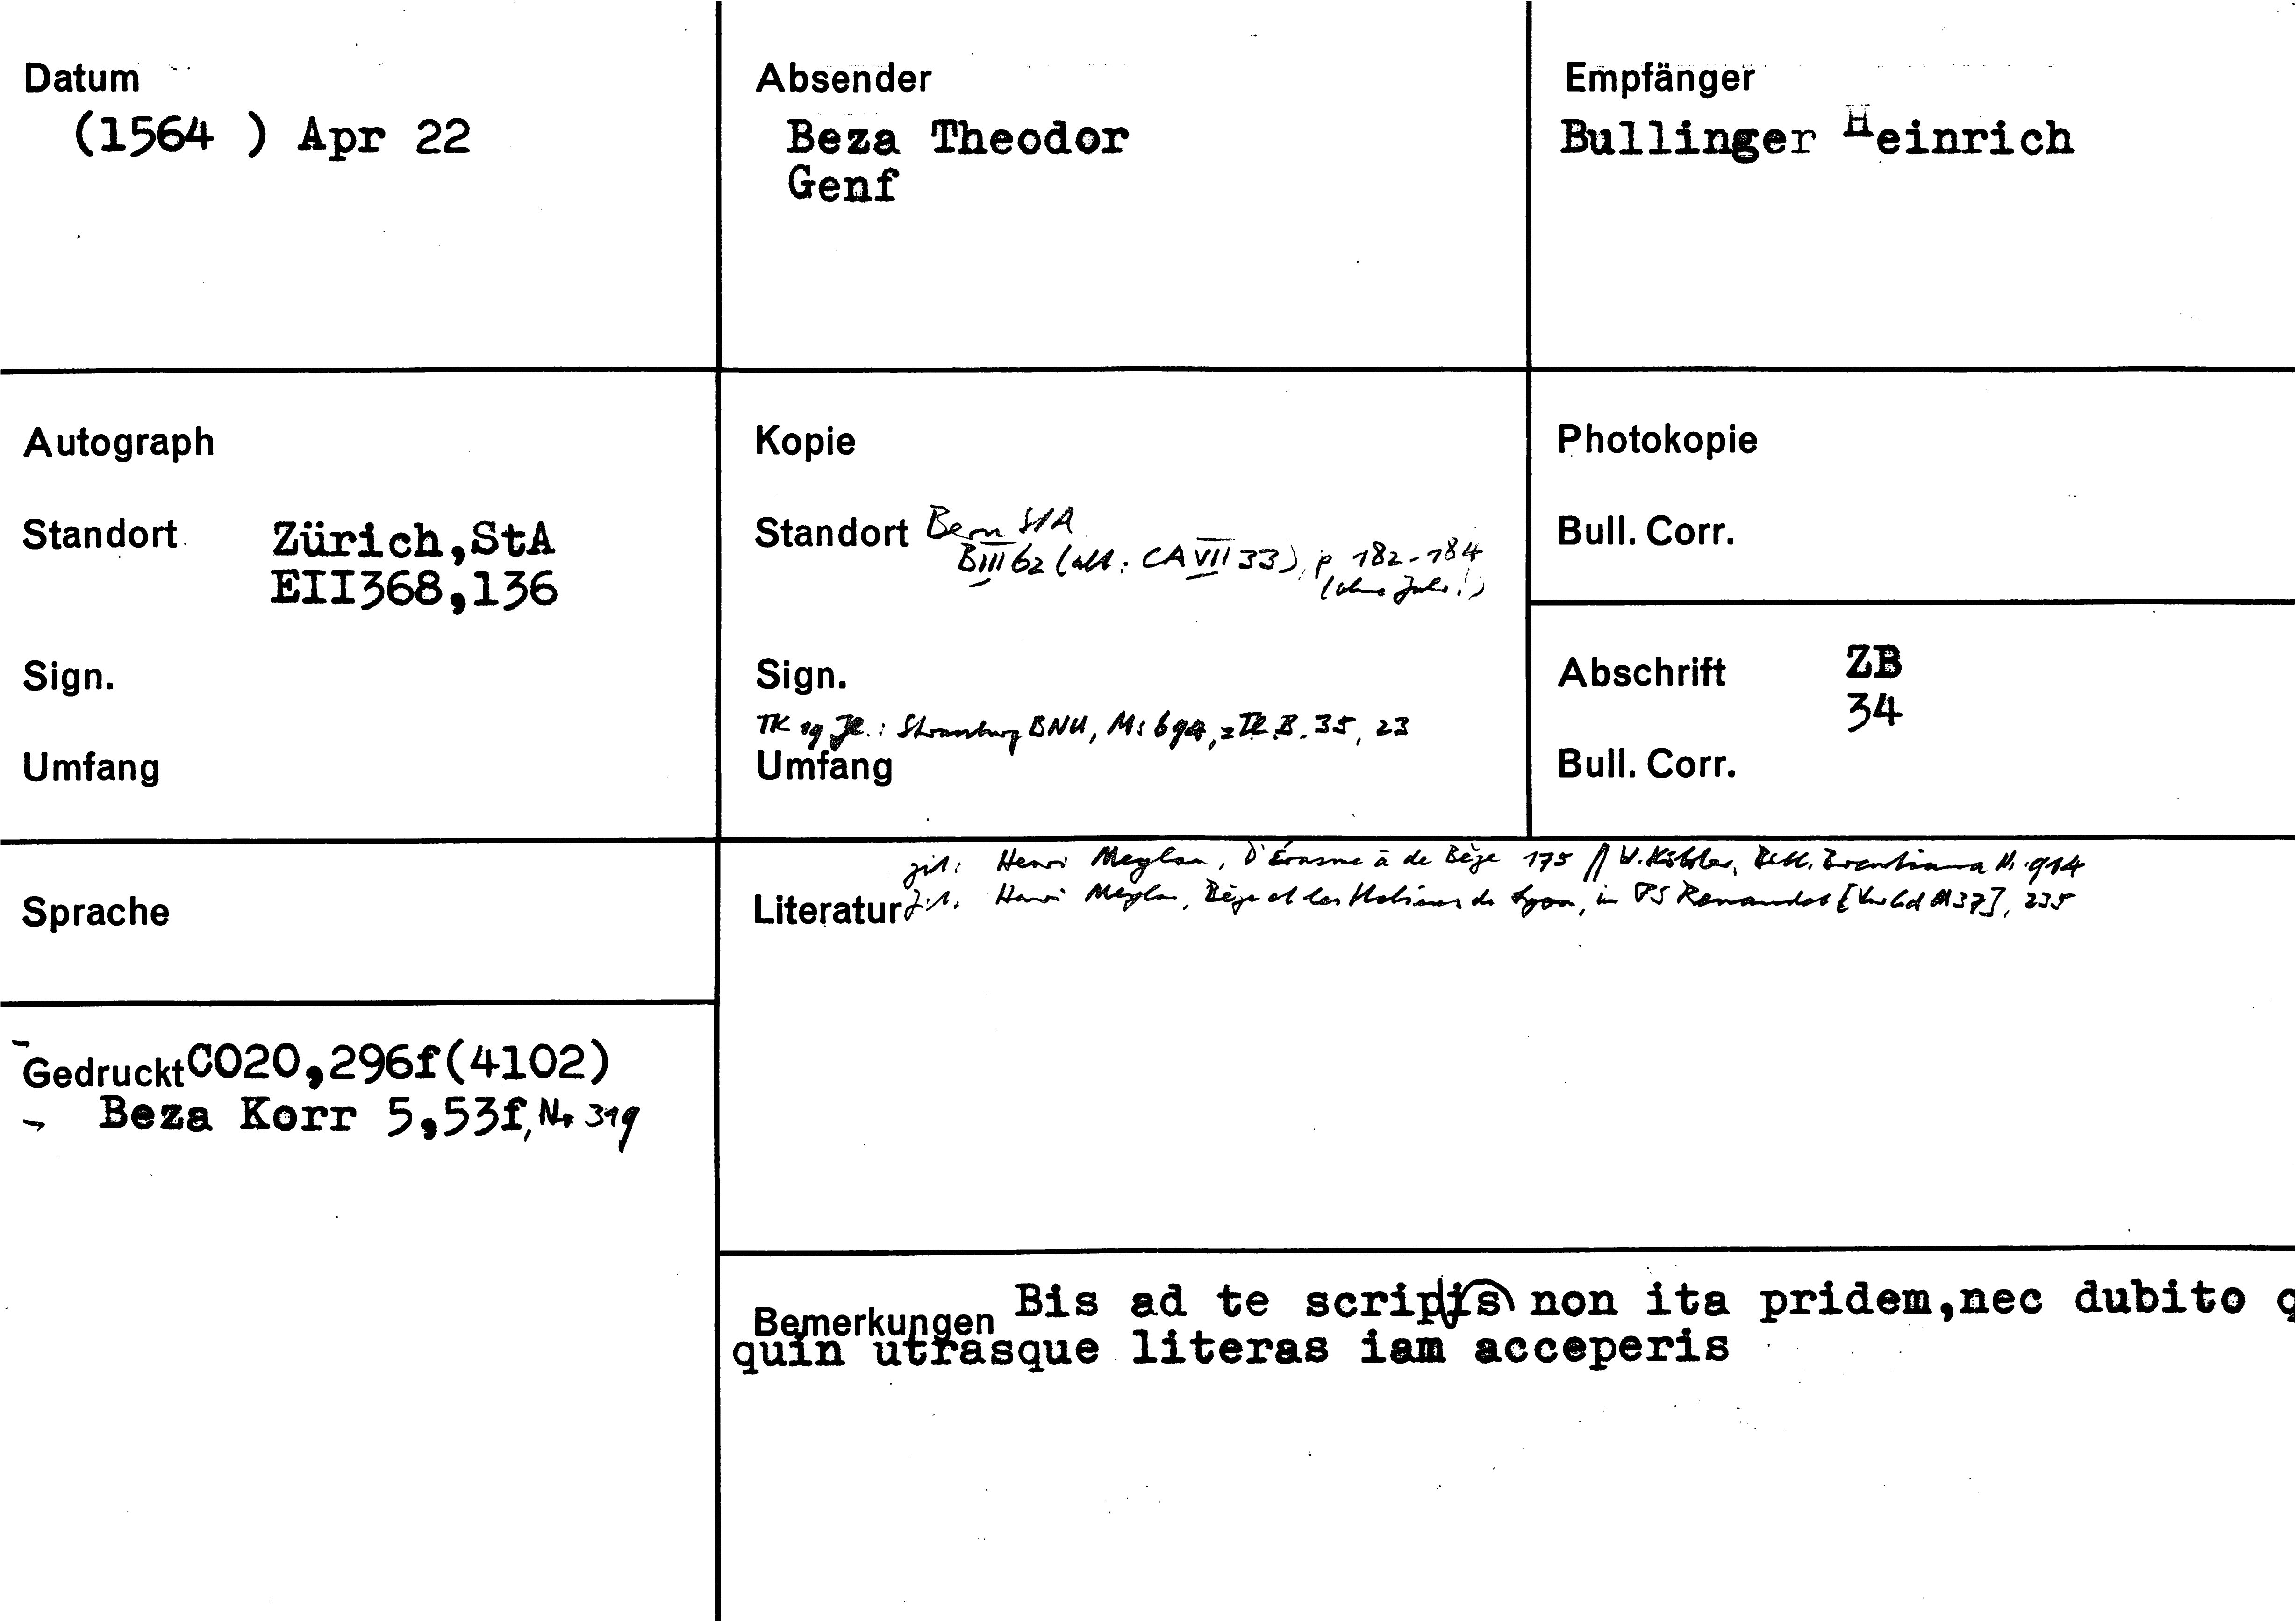 Datum
(1564 ) Apr 22
Absender
Beza Theodor
Genf
Empfänger
Bullinger Heinrich
Autograph
Standort Zürich,StA
EII368,136
Sign.
Umfang
Kopie
Standort Bern StA
BIII 62 (alt: CA VII 33), p 182-184
(ohne Jahr!)
Sign.
TK 19 Jh.: Strassburg BNU, Ms 694, = Th. B. 35, 23
Umfang
Photokopie
Bull. Corr.
Abschrift ZB
34
Bull. Corr.
Sprache
zit: Henri Meylan, D'Érasme à de Bèze 175 // W. Köhler, Bibl. Brentiana Nr. 914
Literatur zit. Henri Meylan, Bèze et les Italiens de Lyon, in PS Renaudet [ M 37], 235
- Gedruckt CO20,296f(4102)
- Beza Korr 5,53f, Nr 319
Bemerkungen Bis ad te scripis non ita pridem,nec dubito q
quin utrasque literas iam acceperis